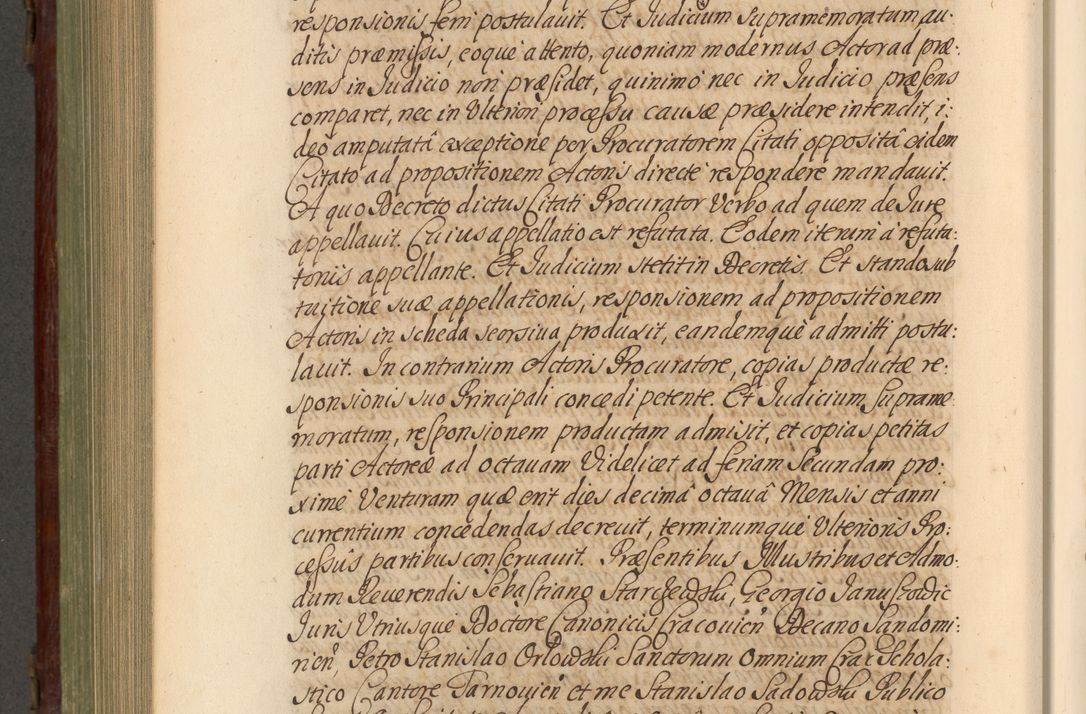 responsionis feri postulauit. Et Judicium supramemoratum au:
ditis præmissis, eoque attento, quoniam modernus Actor ad præ:
sens in Judicio non præsidet, quinimo nec in Judicio præsens
comparet, nec in Ulteriori processu causæ præsidere intendit, i:
deo amputatâ exceptione per Procuratorem Citati oppositâ eidem
Citato ad propositionem Actoris directè respondere mandauit.
A quo Decreto dictus Citati Procurator Verbo ad quem de Jure
appellauit. Cuius appellatio est refutata. Eodem iterum à refuta:
torijs appellante. Et Judicium stetit in Decretis. Et stando sub
tuitione suæ appellationis, responsionem ad propositionem
Actoris in scheda seorsiua produxit, eandemquè admitti postu:
lauit. In contrarium Actoris Procuratore, copias productæ re:
sponsionis suo Principali concedi petente. Et Judicium Suprame
moratum, responsionem productam admisit, et copias petitas
parti Actoreæ ad octauam Videlicet ad feriam Secundam pro:
ximè Venturam quæ erit dies decimâ octauâ Mensis et anni
currentium concedendas decreuit, terminumquè Ulterioris Pro:
cessûs partibus conseruauit. Præsentibus Illustribus et Admo:
dum Reuerendis Sebastiano Starzewski, Georgio Januszowic
Juris Utriusque Doctore Canonicis Cracouien Decano Sandomi:
rien, Petro Stanislao Orlowski Sanctorum Omnium Crac Schola:
stico Cantore Tarnouien et me Stanislao Sadowski Publico